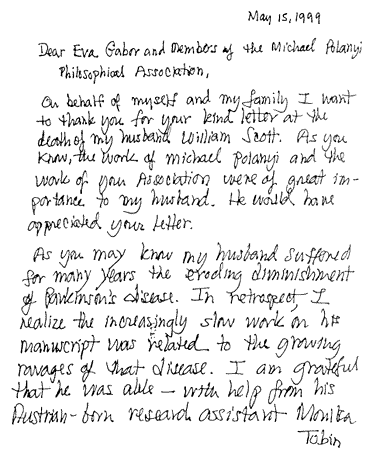 May 15, 1999
Dear Eva Gabor and Members of the Michael Polanyi
Philosophical Association,
On behalf of myself and my family I want
to thank you for your kind letter at the
death of my husband William Scott. As you
know, the work of Michael Polanyi and the
work of your Association were of great im-
portance to my husband. He would have
appreciated your letter.
As you may know my husband suffered
for many years the eroding diminishment
of Parkinson's disease. In retrospect, I
realize the increasingly slow work on his
manuscript was related to the growing
ravages of that disease. I am grateful
that he was able – with help from his
Austrian-born research assistant Monika
Tobin